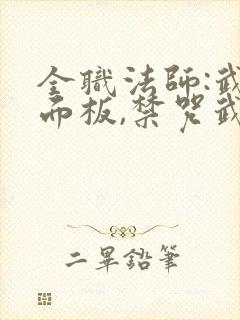 全職法師:武
而板,禁咒武
二畢鉛筆